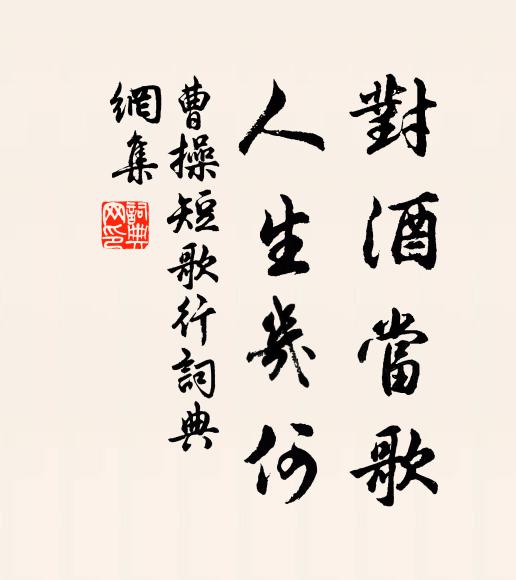 對酒當歌
人生幾何
曹操短歌行詞典
網集
詞典
网印